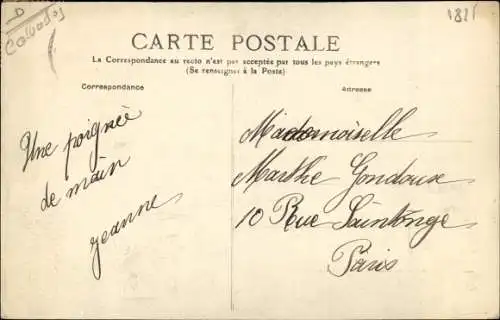 D
Calvados
1821
CARTE POSTALE
La Correspondance au recto n'est pas acceptée par tous les pays étrangers
(Se renseigner à la Poste)
Correspondance
Adresse
Une poignée
de main
Jeanne
Mademoiselle
Marthe Gondoux
10 Rue Saintonge
Paris